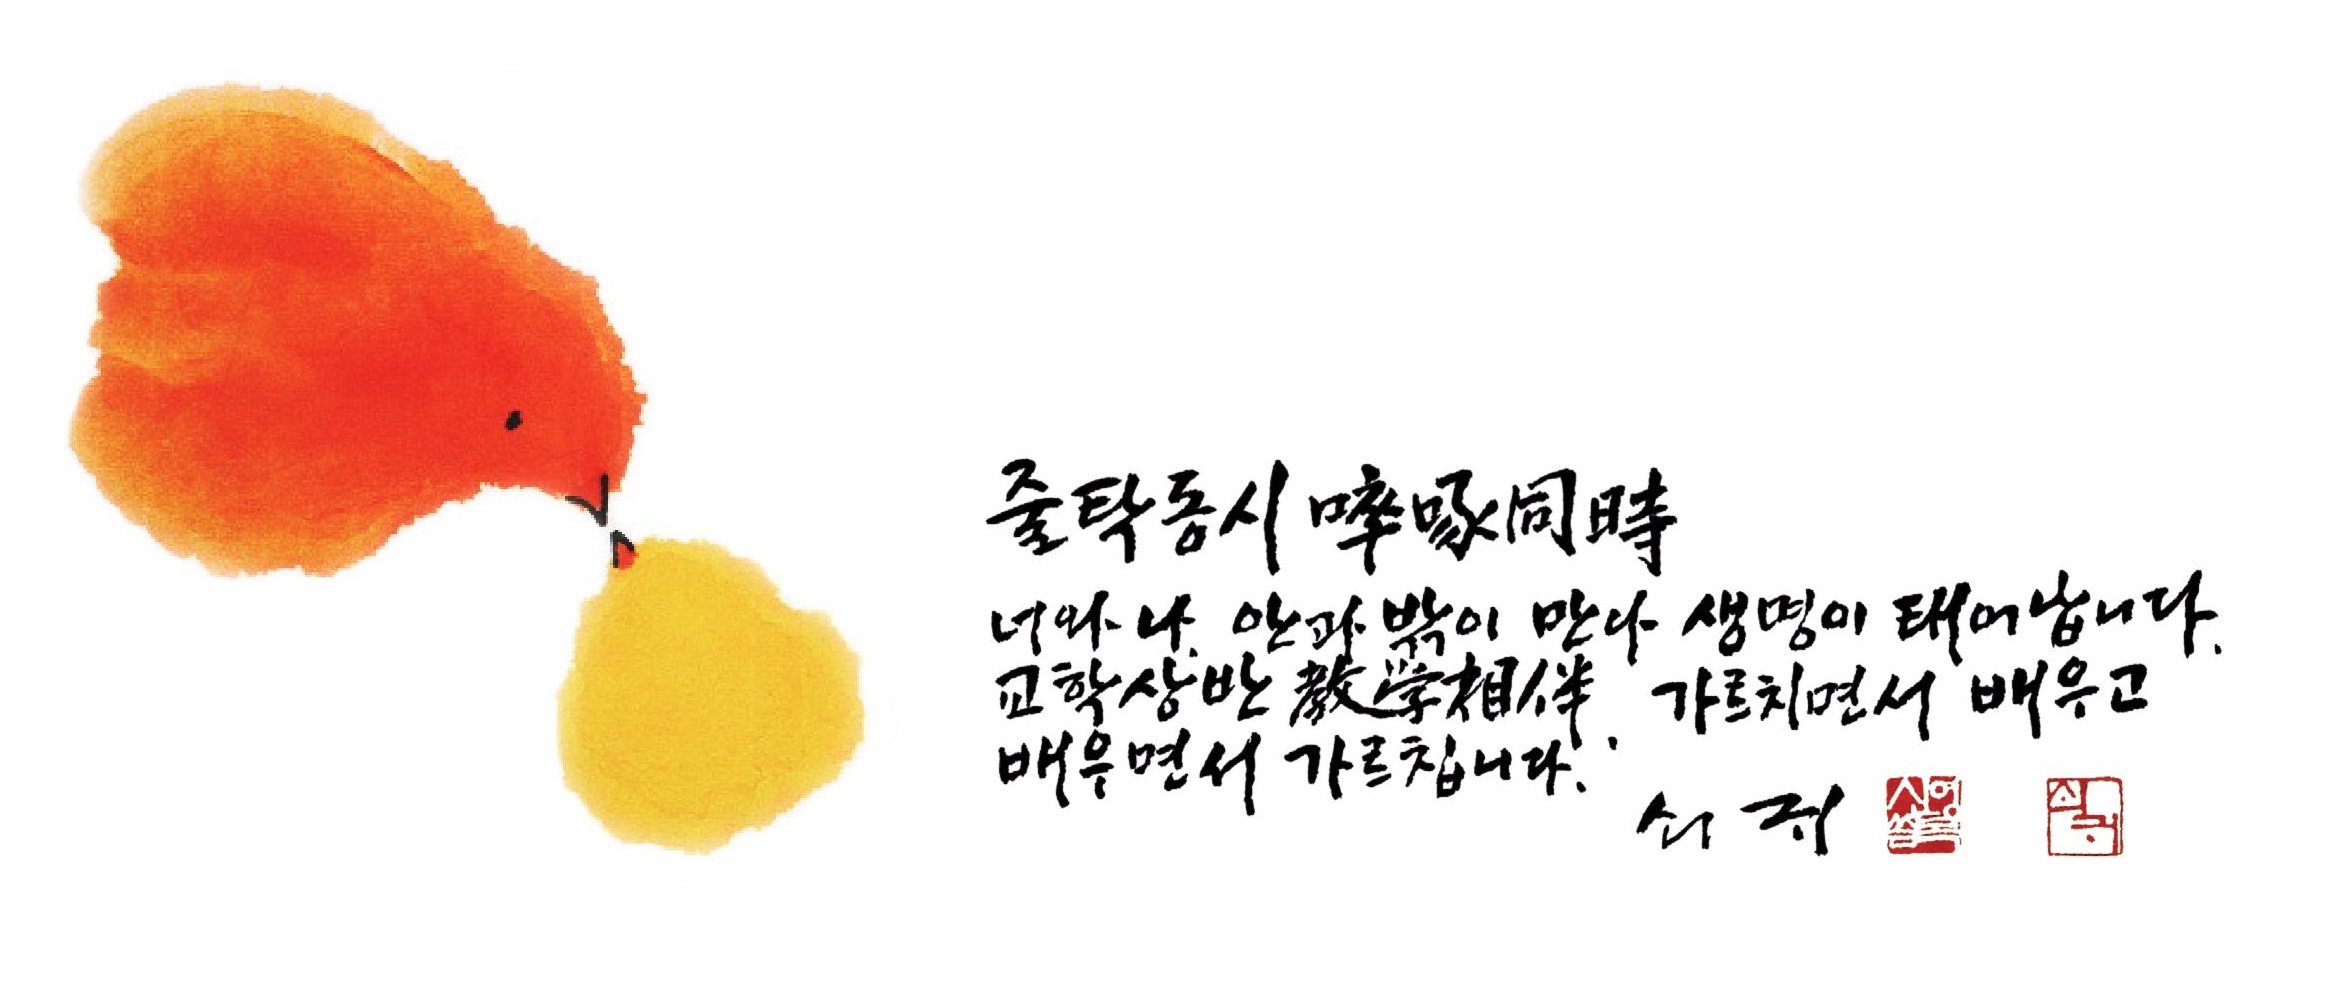 줄탁동시 啐啄同時
너와 나. 안과 밖이 만나 생명이 태어납니다.
교학상반 教學相伴. 가르치면서 배우고
배우면서 가르칩니다.
쇠귀